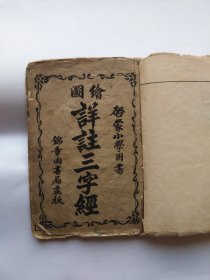 繪圖
啓蒙小學用書
詳註三字經
錦章圖書局藏板